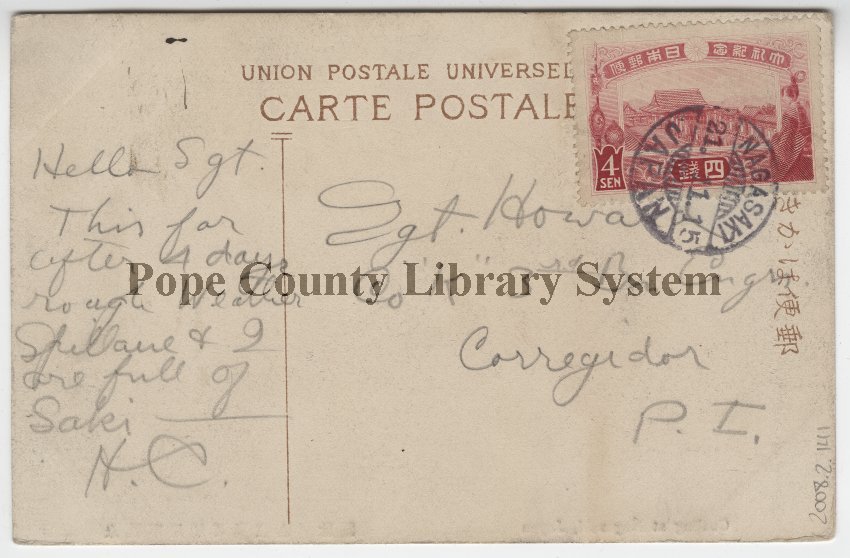 UNION POSTALE UNIVERSEL
CARTE POSTALE
大礼紀念 日本郵便
4 SEN 四錢
NAGASAKI
21.11.15
JAPAN
きかは便郵
Hello Sgt.
This far
after 4 days
rough Weather
Spillane & I
are full of
Saki
H.C.
Sgt. Howa
Co "H" 3rd Bn Engr
Corregidor
P. I.
Pope County Library System
2008.2.1141